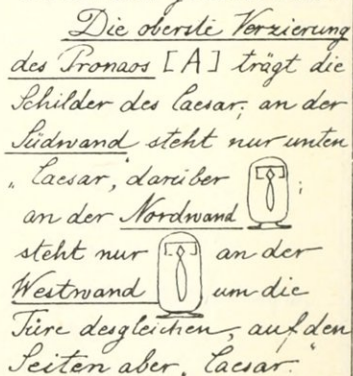 Die oberste Verzierung
des Pronaos [A] trägt die
Schilder des Caesar; an der
Südwand steht nur unten
„Caesar“, darüber ;
an der Nordwand
steht nur an der
Westwand um die
Türe desgleichen, auf den
Seiten aber „Caesar.“